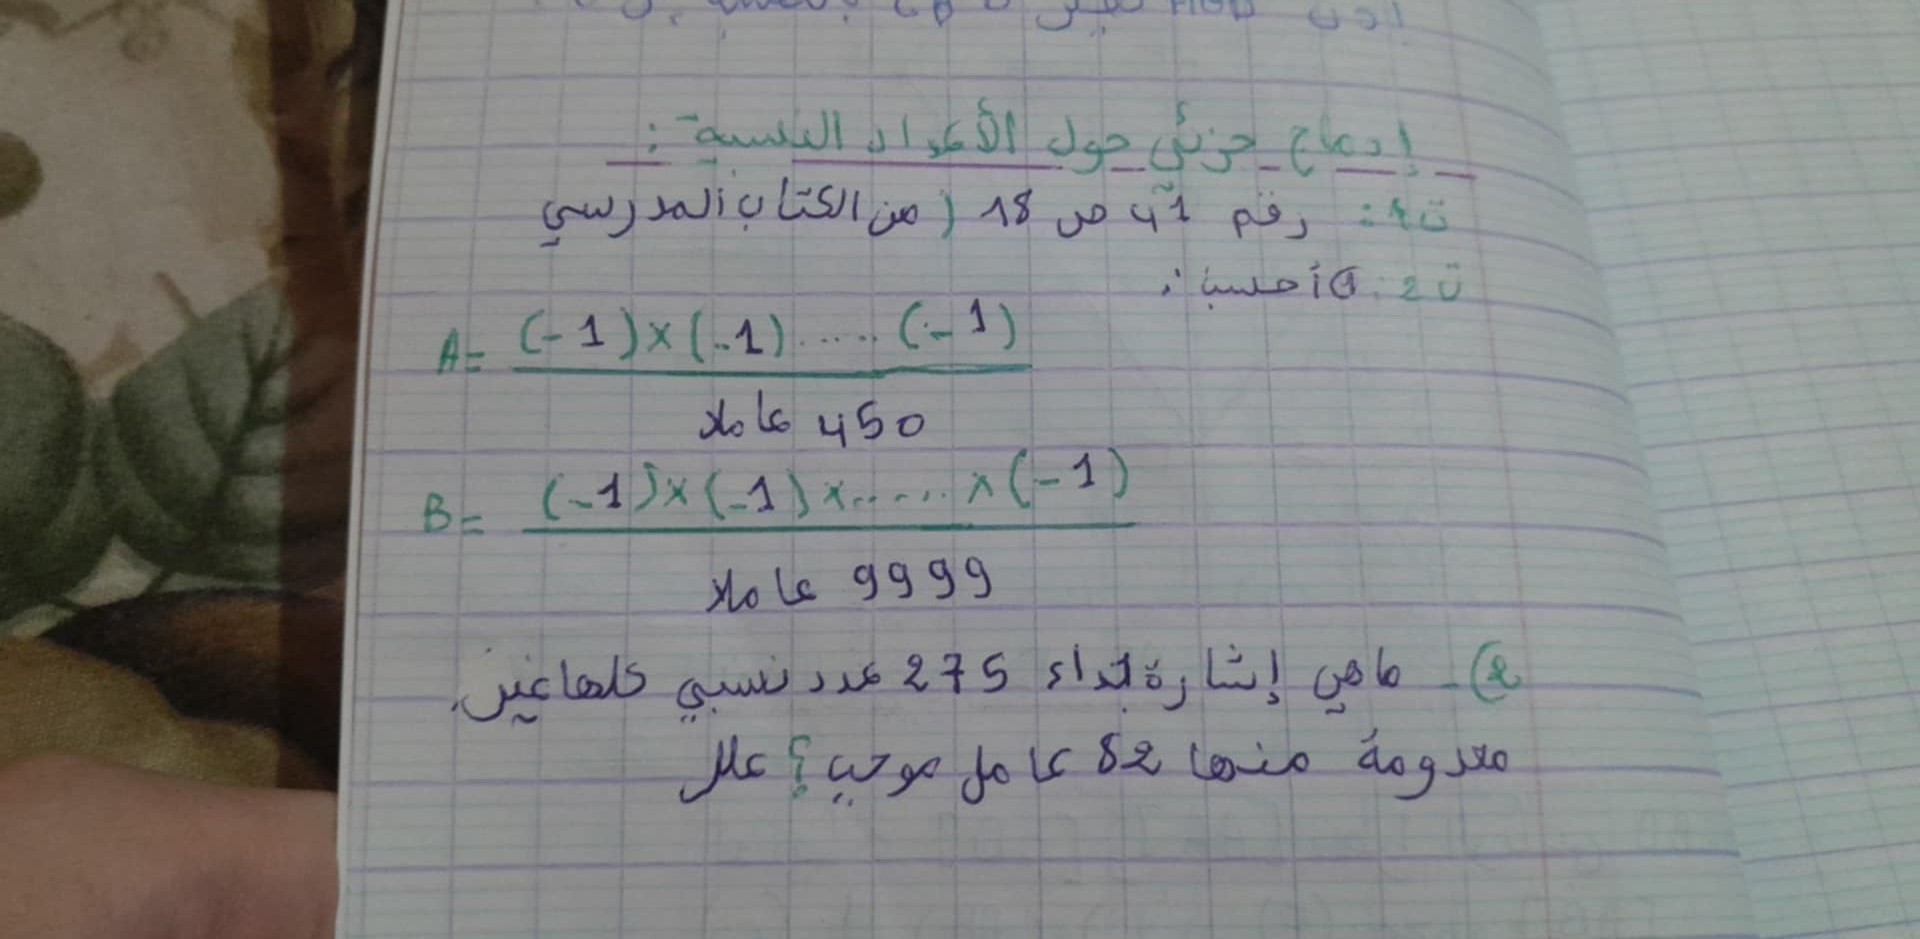 إدماج جزئي حول الأعداد النسبية:
ت1: رقم 41 ص 18 (من الكتاب المدرسي
ت2: ① أحسب:
A= (-1)×(-1).....(-1)
450 عاملا
B= (-1)×(-1)×......×(-1)
9999 عاملا
2)- ما هي إشارة جداء 275 عدد نسبي كلها غير
معدومة منها 82 عامل موجب؟ علل